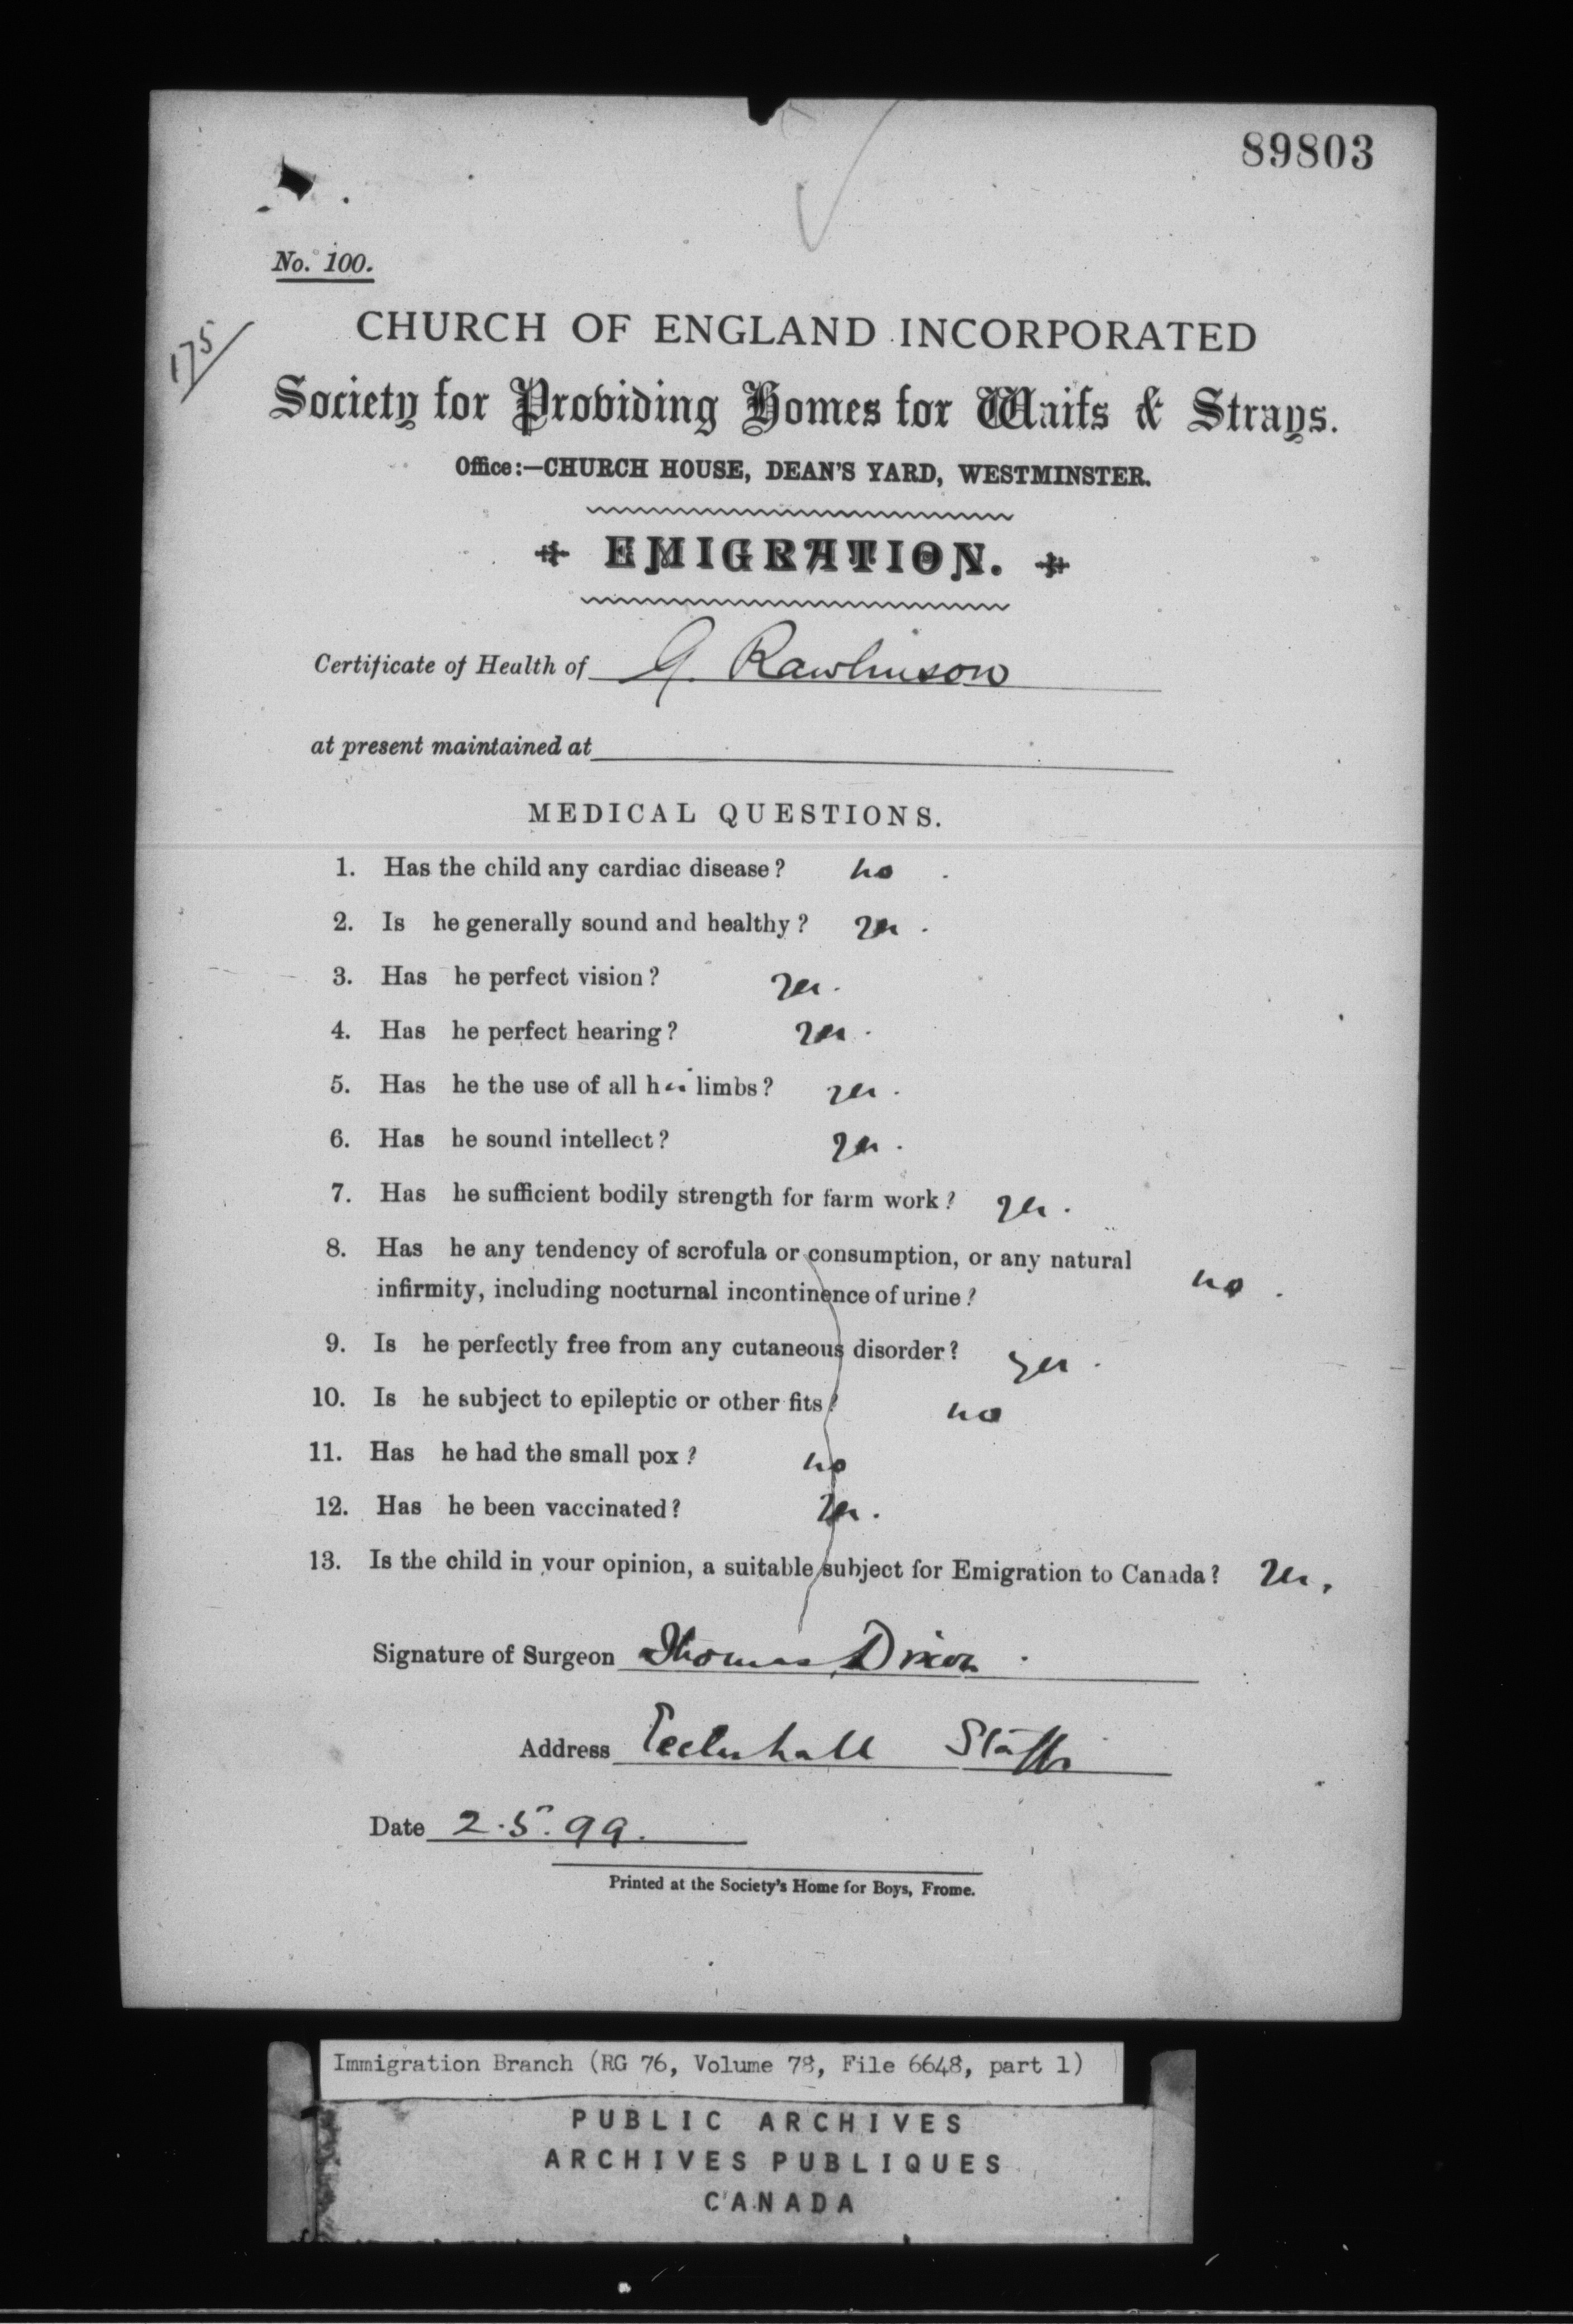 89803
No. 100.
175
CHURCH OF ENGLAND INCORPORATED
Society for Providing Homes for Waifs & Strays.
Office:—CHURCH HOUSE, DEAN'S YARD, WESTMINSTER.
EMIGRATION.
Certificate of Health of G. Rawlinson
at present maintained at
MEDICAL QUESTIONS.
1. Has the child any cardiac disease? no
2. Is he generally sound and healthy? yes.
3. Has he perfect vision? yes.
4. Has he perfect hearing? yes.
5. Has he the use of all his limbs? yes.
6. Has he sound intellect? yes.
7. Has he sufficient bodily strength for farm work? yes.
8. Has he any tendency of scrofula or consumption, or any natural
infirmity, including nocturnal incontinence of urine? no.
9. Is he perfectly free from any cutaneous disorder? yes.
10. Is he subject to epileptic or other fits? no
11. Has he had the small pox? no
12. Has he been vaccinated? yes.
13. Is the child in your opinion, a suitable subject for Emigration to Canada? yes.
Signature of Surgeon Thomas Dixon.
Address Eccleshall Staffs
Date 2.5.99.
Printed at the Society's Home for Boys, Frome.
Immigration Branch (RG 76, Volume 78, File 6648, part 1)
PUBLIC ARCHIVES
ARCHIVES PUBLIQUES
CANADA